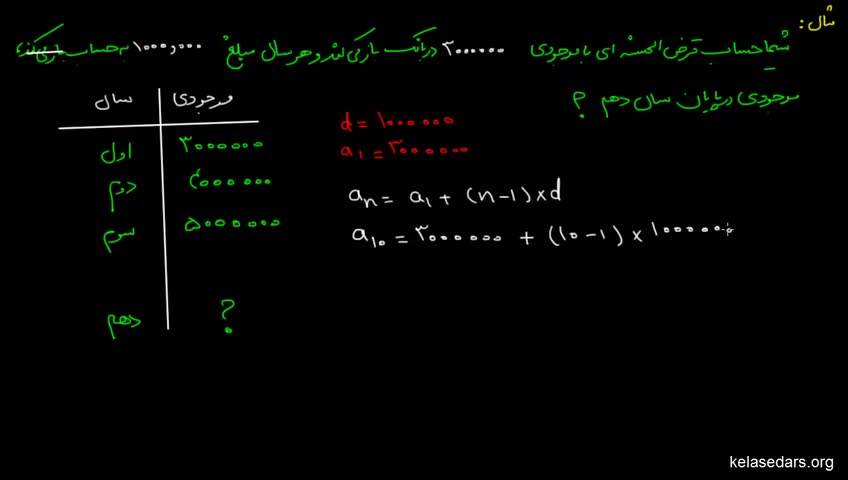 مثال:
شما حساب قرض الحسنه ای با موجودی ۳۰۰۰۰۰۰ در بانک باز می کند و هر سال مبلغ ۱۰۰۰,۰۰۰ به حساب
موجودی در پایان سال دهم ?
سال موجودی
اول ۳۰۰۰۰۰۰
دوم ۴۰۰۰۰۰۰
سوم ۵۰۰۰۰۰۰
دهم ?
d = ۱۰۰۰۰۰۰
a₁ = ۳۰۰۰۰۰۰
aₙ = a₁ + (n-1) × d
a₁۰ = ۳۰۰۰۰۰۰ + (۱۰-۱) × ۱۰۰۰۰۰۰
kelasedars.org